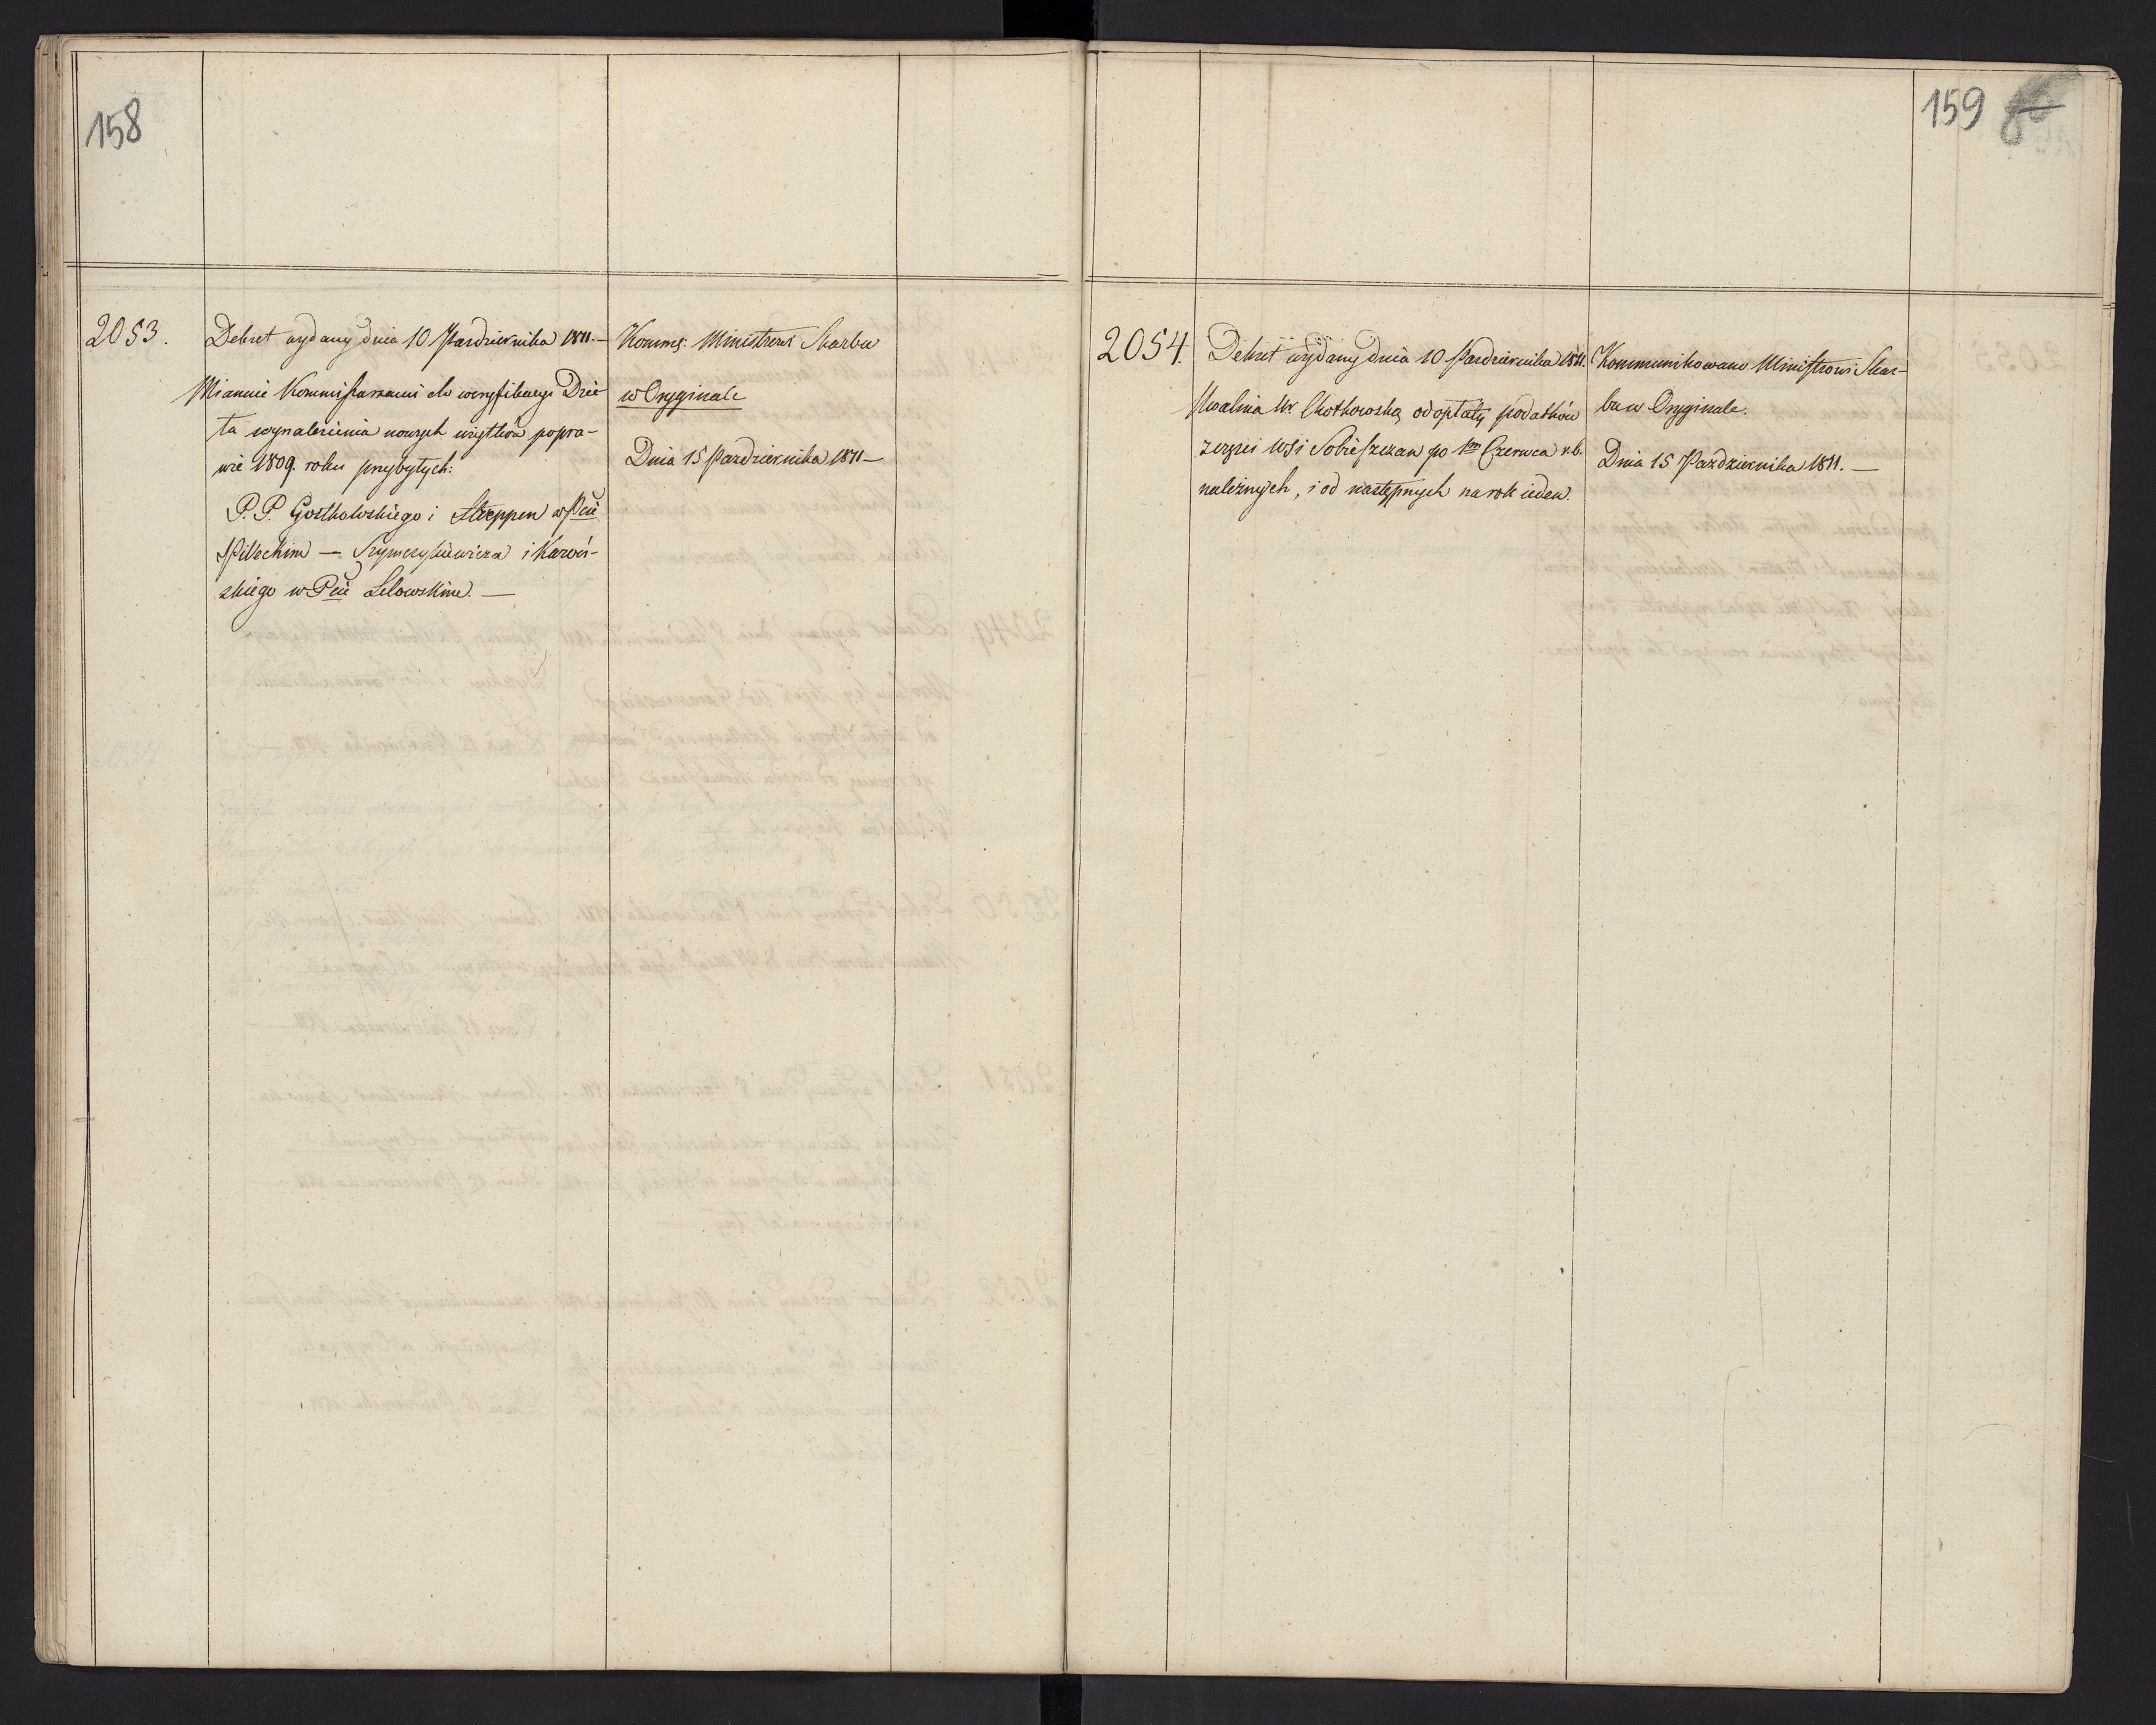 158
2053.
Dekret wydany dnia 10 Pazdziernika 1811. —
Mianuie Kommissarzami do weryfikacyi Dzie-
ta wynalezienia nowych użytków popra-
wie 1809. roku przybytych:
P. P. Gostkowskiego i Streppen w Pcie
Pileckim — Szymczykiewicza i Karwiń-
skiego w Pcie Lelowskim. —
Kommę: Ministrowi Skarbu
w Oryginale
Dnia 15 Pazdziernika 1811 —
159
2054.
Dekret wydany dnia 10 Pazdziernika 1811.
Uwalnia Ur. Chotkowską od opłaty podatków
zezęści wsi Sobieszczan po 1m Czerwca r.b.
należnych, i od następnych na rok ieden.
Kommunikowano Ministrowi Skar-
bu w Oryginale.
Dnia 15 Pazdziernika 1811. —